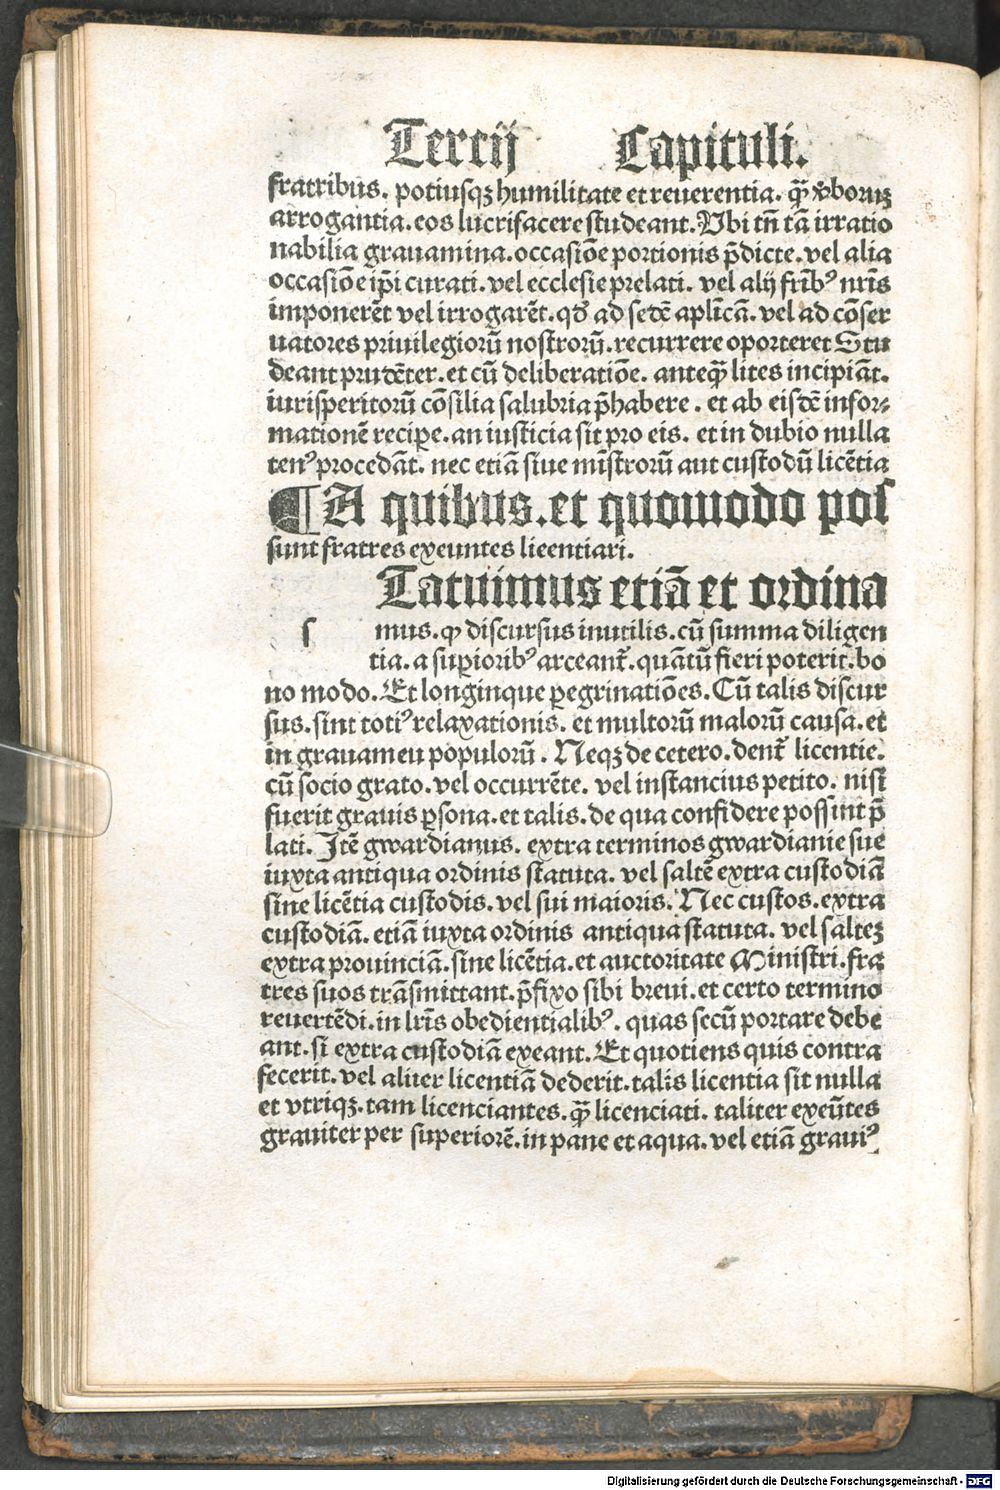 Tercij Capituli.
fratribus. potiusqꝫ humilitate et reuerentia. qᷓ ꝟboruꝫ
arrogantia. eos lucrifacere studeant. Vbi tñ tā irratio
nabilia grauamina. occasiōe portionis p̄dicte. vel alia
occasiōe ip̄i curati. vel ecclesie prelati. vel alij frībꝰ nr̄is
imponerēt vel irrogarēt. qd̓ ad sedē aplīcā. vel ad cōser
uatores priuilegiorū nostrorū. recurrere oporteret Stu
deant prudēter. et cū deliberatiōe. anteqᷓ lites incipiāt.
iurisperitorū cōsilia salubria p̄habere. et ab eisdē infor⸗
mationē recipe. an iusticia sit pro eis. et in dubio nulla
tenꝰ procedāt. nec etiā siue mīstrorū aut custodū licētia
¶ A quibus. et quomodo pos
sunt fratres exeuntes licentiari.
Tatuimus etiā et ordina
s mus. ꝙ discursus inutilis. cū summa diligen
tia. a suꝑioribꝰ arceant᷑. quātū fieri poterit. bo
no modo. Et longinque ꝑegrinatiōes. Cū talis discur
sus. sint totiꝰ relaxationis. et multorū malorū causa. et
in grauameu populorū. Neqꝫ de cetero. dent᷑ licentie.
cū socio grato. vel occurrēte. vel instancius petito. nisi
fuerit grauis ꝑsona. et talis. de qua confidere possint p̄
lati. Itē gwardianus. extra terminos gwardianie sue
iuxta antiqua ordinis statuta. vel saltē extra custodiā
sine licētia custodis. vel sui maioris. Nec custos. extra
custodiā. etiā iuxta ordinis antiqua statuta. vel salteꝫ
extra prouinciā. sine licētia. et auctoritate Ministri. fra
tres suos trāsmittant. p̄fixo sibi breui. et certo termino
reuertēdi. in lr̄is obedientialibꝰ. quas secū portare debe
ant. si extra custodiā exeant. Et quotiens quis contra
fecerit. vel aliter licentiā dederit. talis licentia sit nulla
et vtriqꝫ. tam licenciantes. qᷓ licenciati. taliter exeūtes
grauiter per superiorē. in pane et aqua. vel etiā grauiꝰ
Digitalisierung gefördert durch die Deutsche Forschungsgemeinschaft - DFG